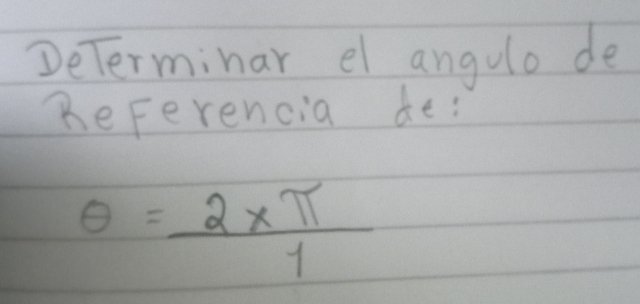 Determinar el angulo de
Referencia de:
θ = 2 x π
1